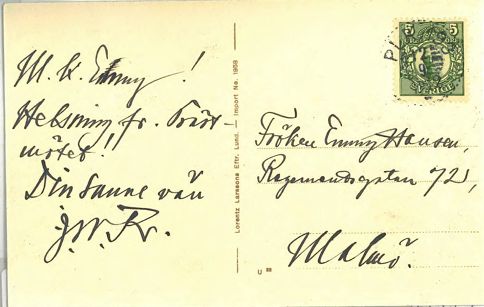 M. k. Emmy!
Helsning fr. Präst-
mötet!!
Din sanne vän
J. W. Kr.
Lorentz Larssons Eftr. Lund. — Import No. 1908
5 5
SVERIGE
Fröken Emmy Hansen,
72,
Malmö.
U